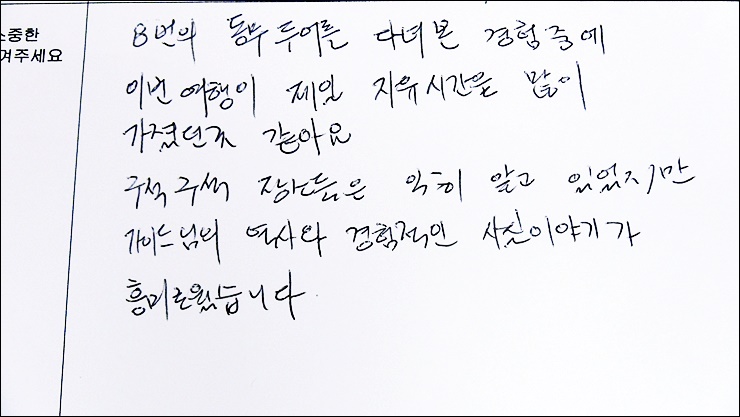 소중한
겨주세요
8번의 동부 투어를 다녀 본 경험 중에
이번 여행이 제일 자유시간을 많이
가졌던것 같아요
구석 구석 장소들은 익히 알고 있었지만
가이드님의 역사와 경험적인 사실이야기가
흥미로웠습니다